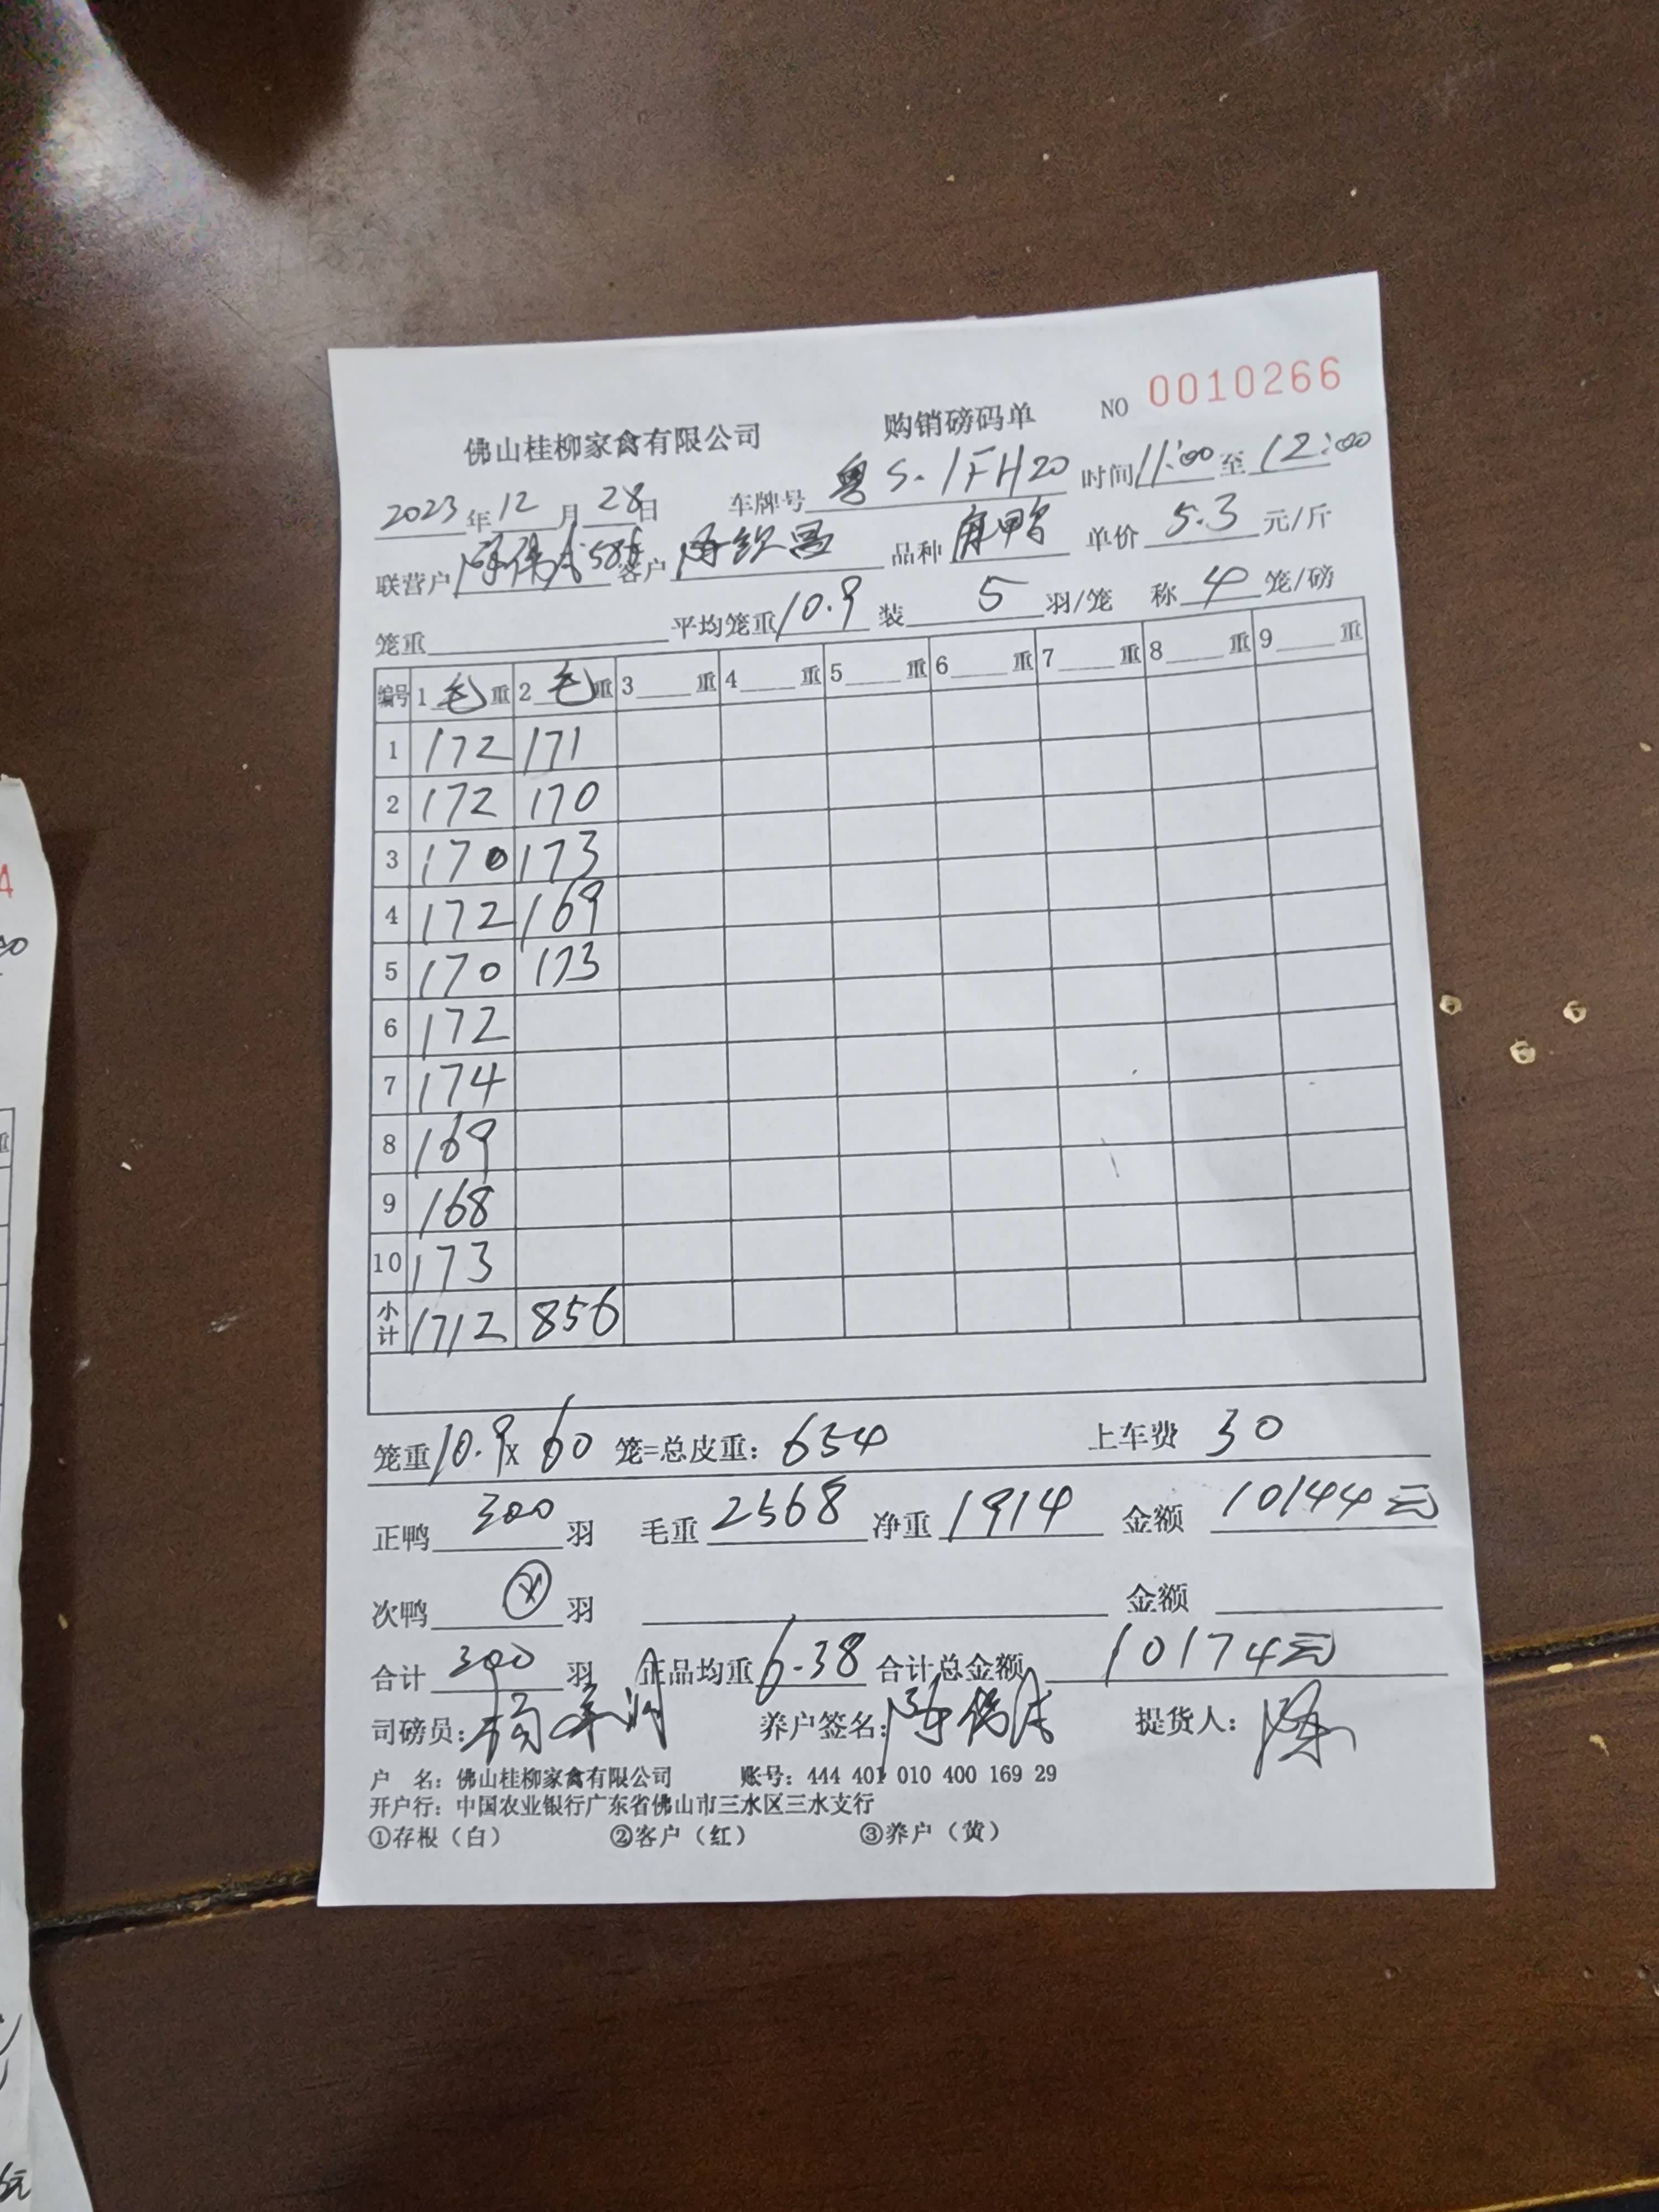 佛山桂柳家禽有限公司 购销磅码单 NO 0010266
2023年12月28日 车牌号 粤S.1FH20 时间11:00至12:00
联营户 客户 品种 单价 5.3 元/斤
笼重 平均笼重10.9 装 5 羽/笼 称 4 笼/磅
编号 1 毛 重 2 毛 重 3 重 4 重 5 重 6 重 7 重 8 重 9 重
1 172 171
2 172 170
3 170 173
4 172 169
5 170 173
6 172
7 174
8 169
9 168
10 173
小计 1712 856
笼重10.9x60 笼=总皮重:654 上车费 30
正鸭 300 羽 毛重 2568 净重 1914 金额 10144元
次鸭 羽 金额
合计 300 羽 正品均重 6.38 合计总金额 10174元
司磅员: 养户签名: 提货人:
户 名:佛山桂柳家禽有限公司 账号:444 401 010 400 169 29
开户行:中国农业银行广东省佛山市三水区三水支行
①存根(白) ②客户(红) ③养户(黄)